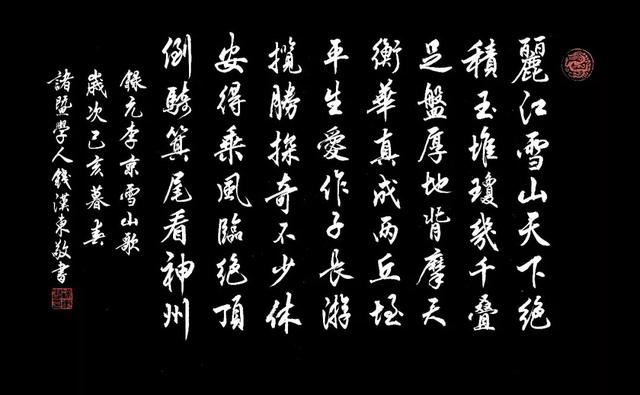 麗江雪山天下绝
積玉堆瓊幾千叠
足盤厚地背摩天
衡華真成两丘垤
平生愛作子長游
攬勝探奇不少休
安得乘風臨绝頂
倒騎箕尾看神州
録元李京雪山歌
歲次己亥暮春
諸暨學人錢漢東敬書